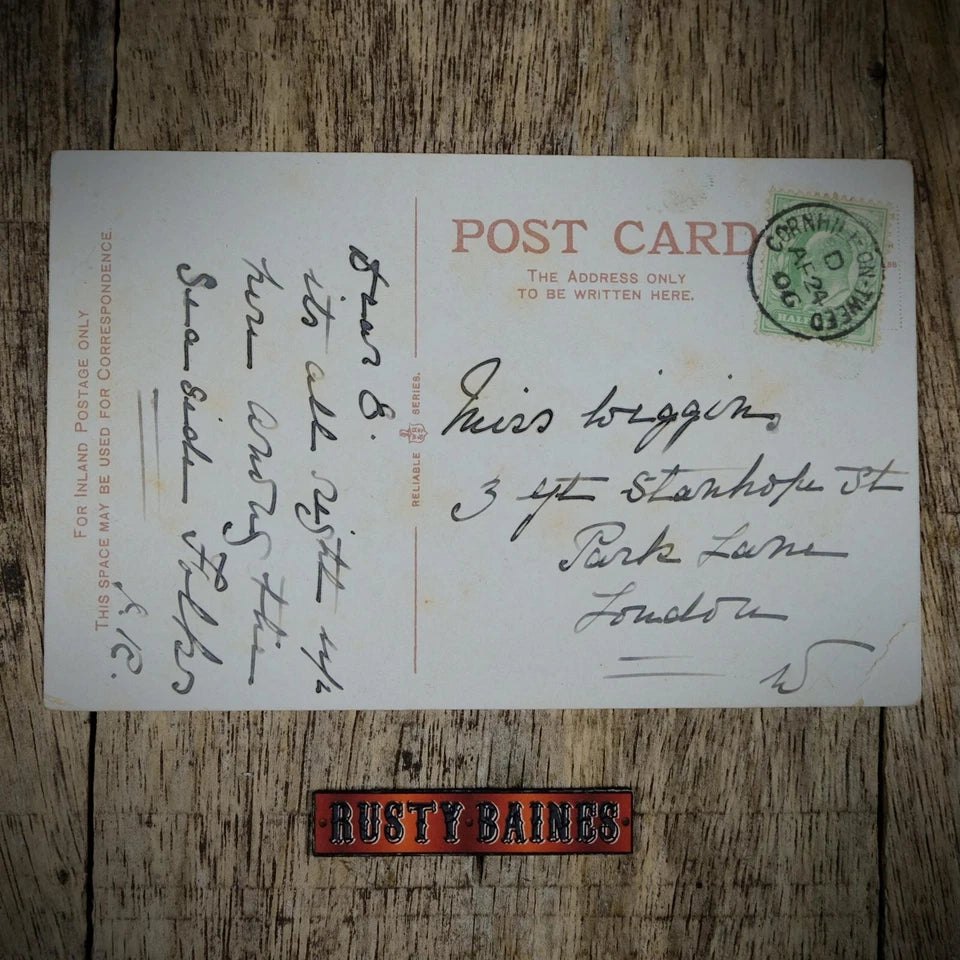 FOR INLAND POSTAGE ONLY
THIS SPACE MAY BE USED FOR CORRESPONDENCE.
Dear E.
its all right up
here among the
Sea Side Folks
RELIABLE SERIES.
POST CARD
THE ADDRESS ONLY
TO BE WRITTEN HERE.
CORNHILL-ON-TWEED
D
24
06
HALF
Miss Wiggins
3 gt Stanhope St
Park Lane
London
W
RUSTY BAINES